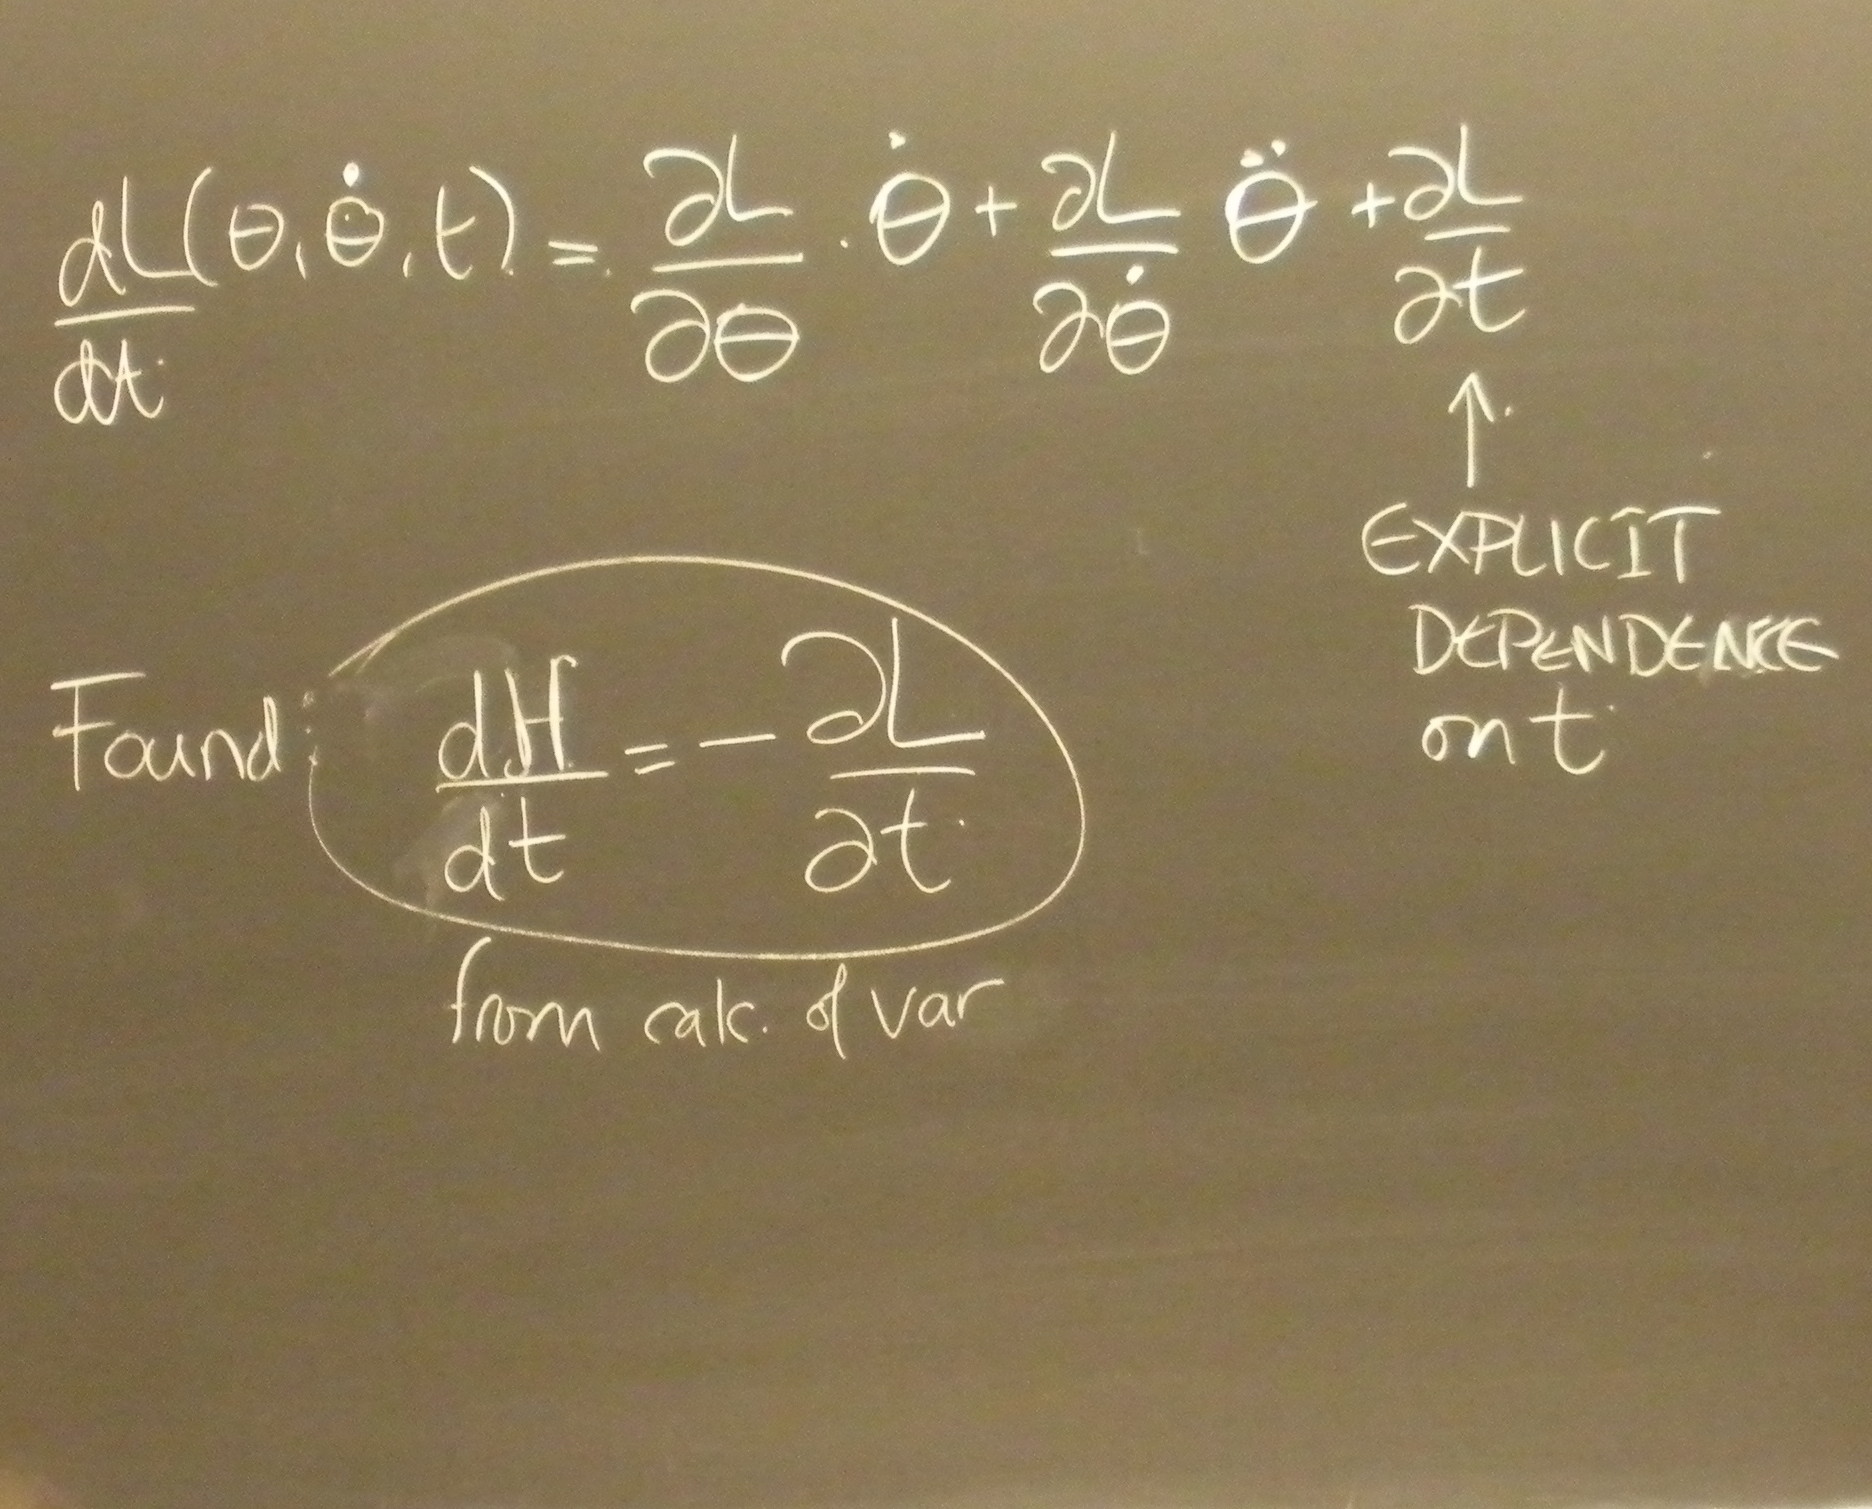 dL/dt (θ, θ̇, t) = ∂L/∂θ · θ̇ + ∂L/∂θ̇ θ̈ + ∂L/∂t
↑
EXPLICIT
DEPENDENCE
on t
Found: dH/dt = - ∂L/∂t
from calc. of var